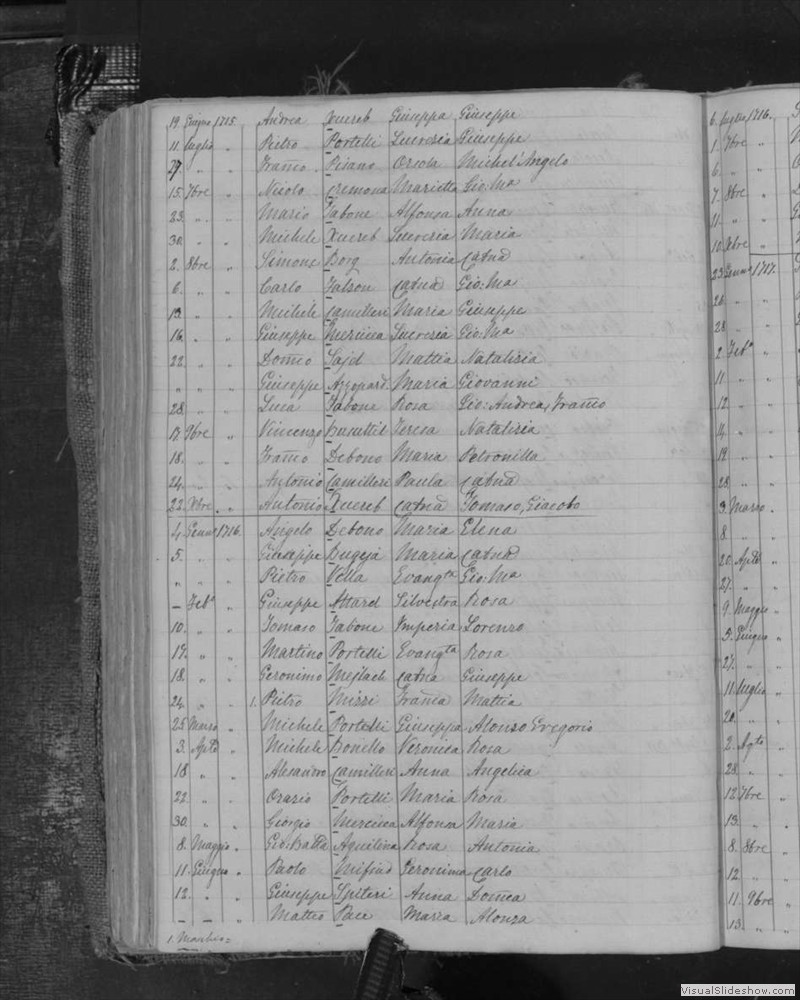 19. Giugno 1715. Andrea Xuereb Giuseppa Giuseppe
11. Luglio " Pietro Portelli Lucrezia Giuseppe
27. " " Franco. Pisano Orsola Michel'Angelo
15. 7bre " Nicolo Cremona Marietta Gio: Ma
23. " " Mario Tabone Alfonsa Anna
30. " " Michele Xuereb Lucrezia Maria
2. 8bre " Simone Borg Antonia Catna
6. " " Carlo Falson Catna Gio: Ma
13. " " Michele Camilleri Maria Giuseppe
16. " " Giuseppe Mercieca Lucrezia Gio: Ma
22. " " Domco Sajd Mattia Natalizia
" " " Giuseppe Azzopard. Maria Giovanni
28. " " Luca Tabone Rosa Gio: Andrea, Franco
17. 9bre " Vincenzo Busuttil Teresa Natalizia
18. " " Franco Debono Maria Petronilla
24. " " Antonio Camilleri Paula Catna
22. Xbre " Antonio Xuereb Catna Tomaso, Giacobo
4. Genn. 1716. Angelo Debono Maria Elena
5. " " Giuseppe Bugeja Maria Catna
" " " Pietro Vella Evangta Gio: Ma
– Feba " Giuseppe Attard Silvestra Rosa
10. " " Tomaso Tabone Imperia Lorenzo
17. " " Martino Portelli Evangta Rosa
18. " " Geronimo Mejlach Catna Giuseppe
24. " " 1. Pietro Mizzi Franca Mattia
25 Marzo " Michele Portelli Giuseppa Alonso Gregorio
3. Aple " Michele Bonello Veronica Rosa
18 " " Alesandro Camilleri Anna Angelica
22. " " Orazio Portelli Maria Rosa
30. " " Giorgio Mercieca Alfonsa Maria
8. Maggio " Gio: Batta Aquilina Rosa Antonia
11. Giugno " Paolo Mifsud Geronima Carlo
12. " " Giuseppe Spiteri Anna Domca
– – " Matteo Pace Maria Alonza
6. Luglio 1716.
1. 7bre "
6. " "
7. 8bre "
11. " "
10. Xbre "
23. Genn. 1717.
26. " "
28. " "
2. Feba "
11. " "
12. " "
14. " "
19. " "
28. " "
3. Marzo "
8. " "
20. Aple "
27. " "
9. Maggio "
5. Giugno "
27. " "
11. Luglio "
20. " "
2. Agto "
23. " "
12. 7bre "
13. " "
8. 8bre "
12. " "
11. 9bre "
13. " "
VisualSlideshow.com